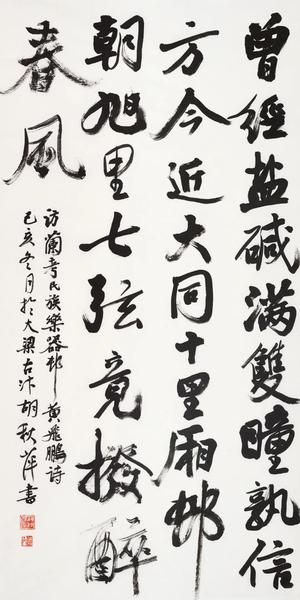 曾經盐碱滿雙瞳孰信
方今近大同十里厢邨
朝旭里七弦竟撥醉
春風
访蘭考民族樂器邨 黄飛鵬诗
己亥冬月於大梁古汴胡秋萍書